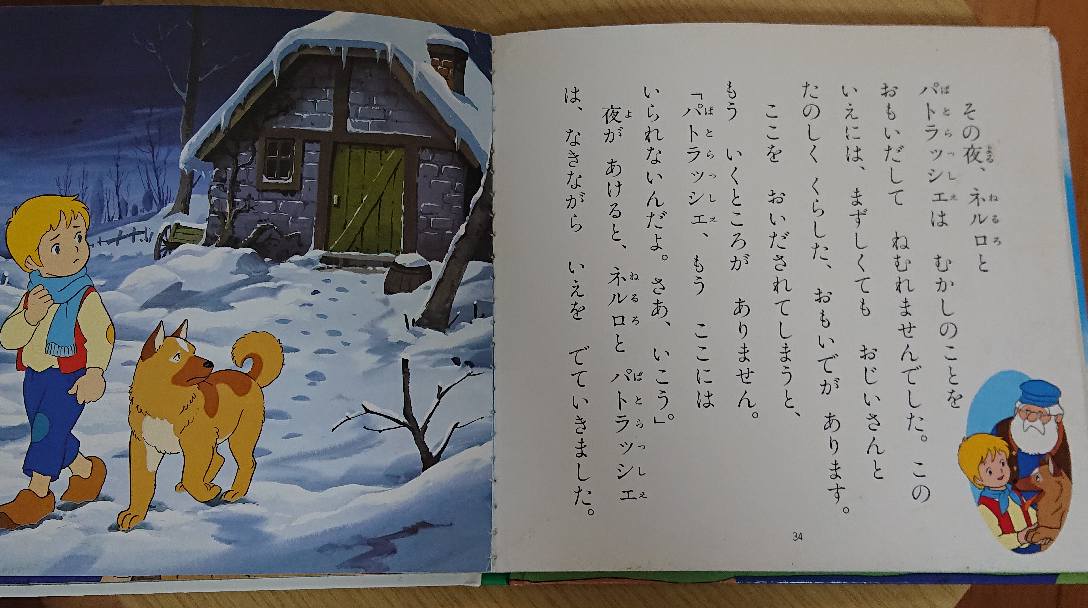 その夜、ネルロと
パトラッシェは　むかしのことを
おもいだして　ねむれませんでした。この
いえには、まずしくても　おじいさんと
たのしく くらした、おもいでが あります。
ここを　おいだされてしまうと、
もう　いくところが　ありません。
「パトラッシェ、もう　ここには
いられないんだよ。さあ、いこう。」
夜が あけると、ネルロと パトラッシェ
は、なきながら　いえを　でていきました。
34